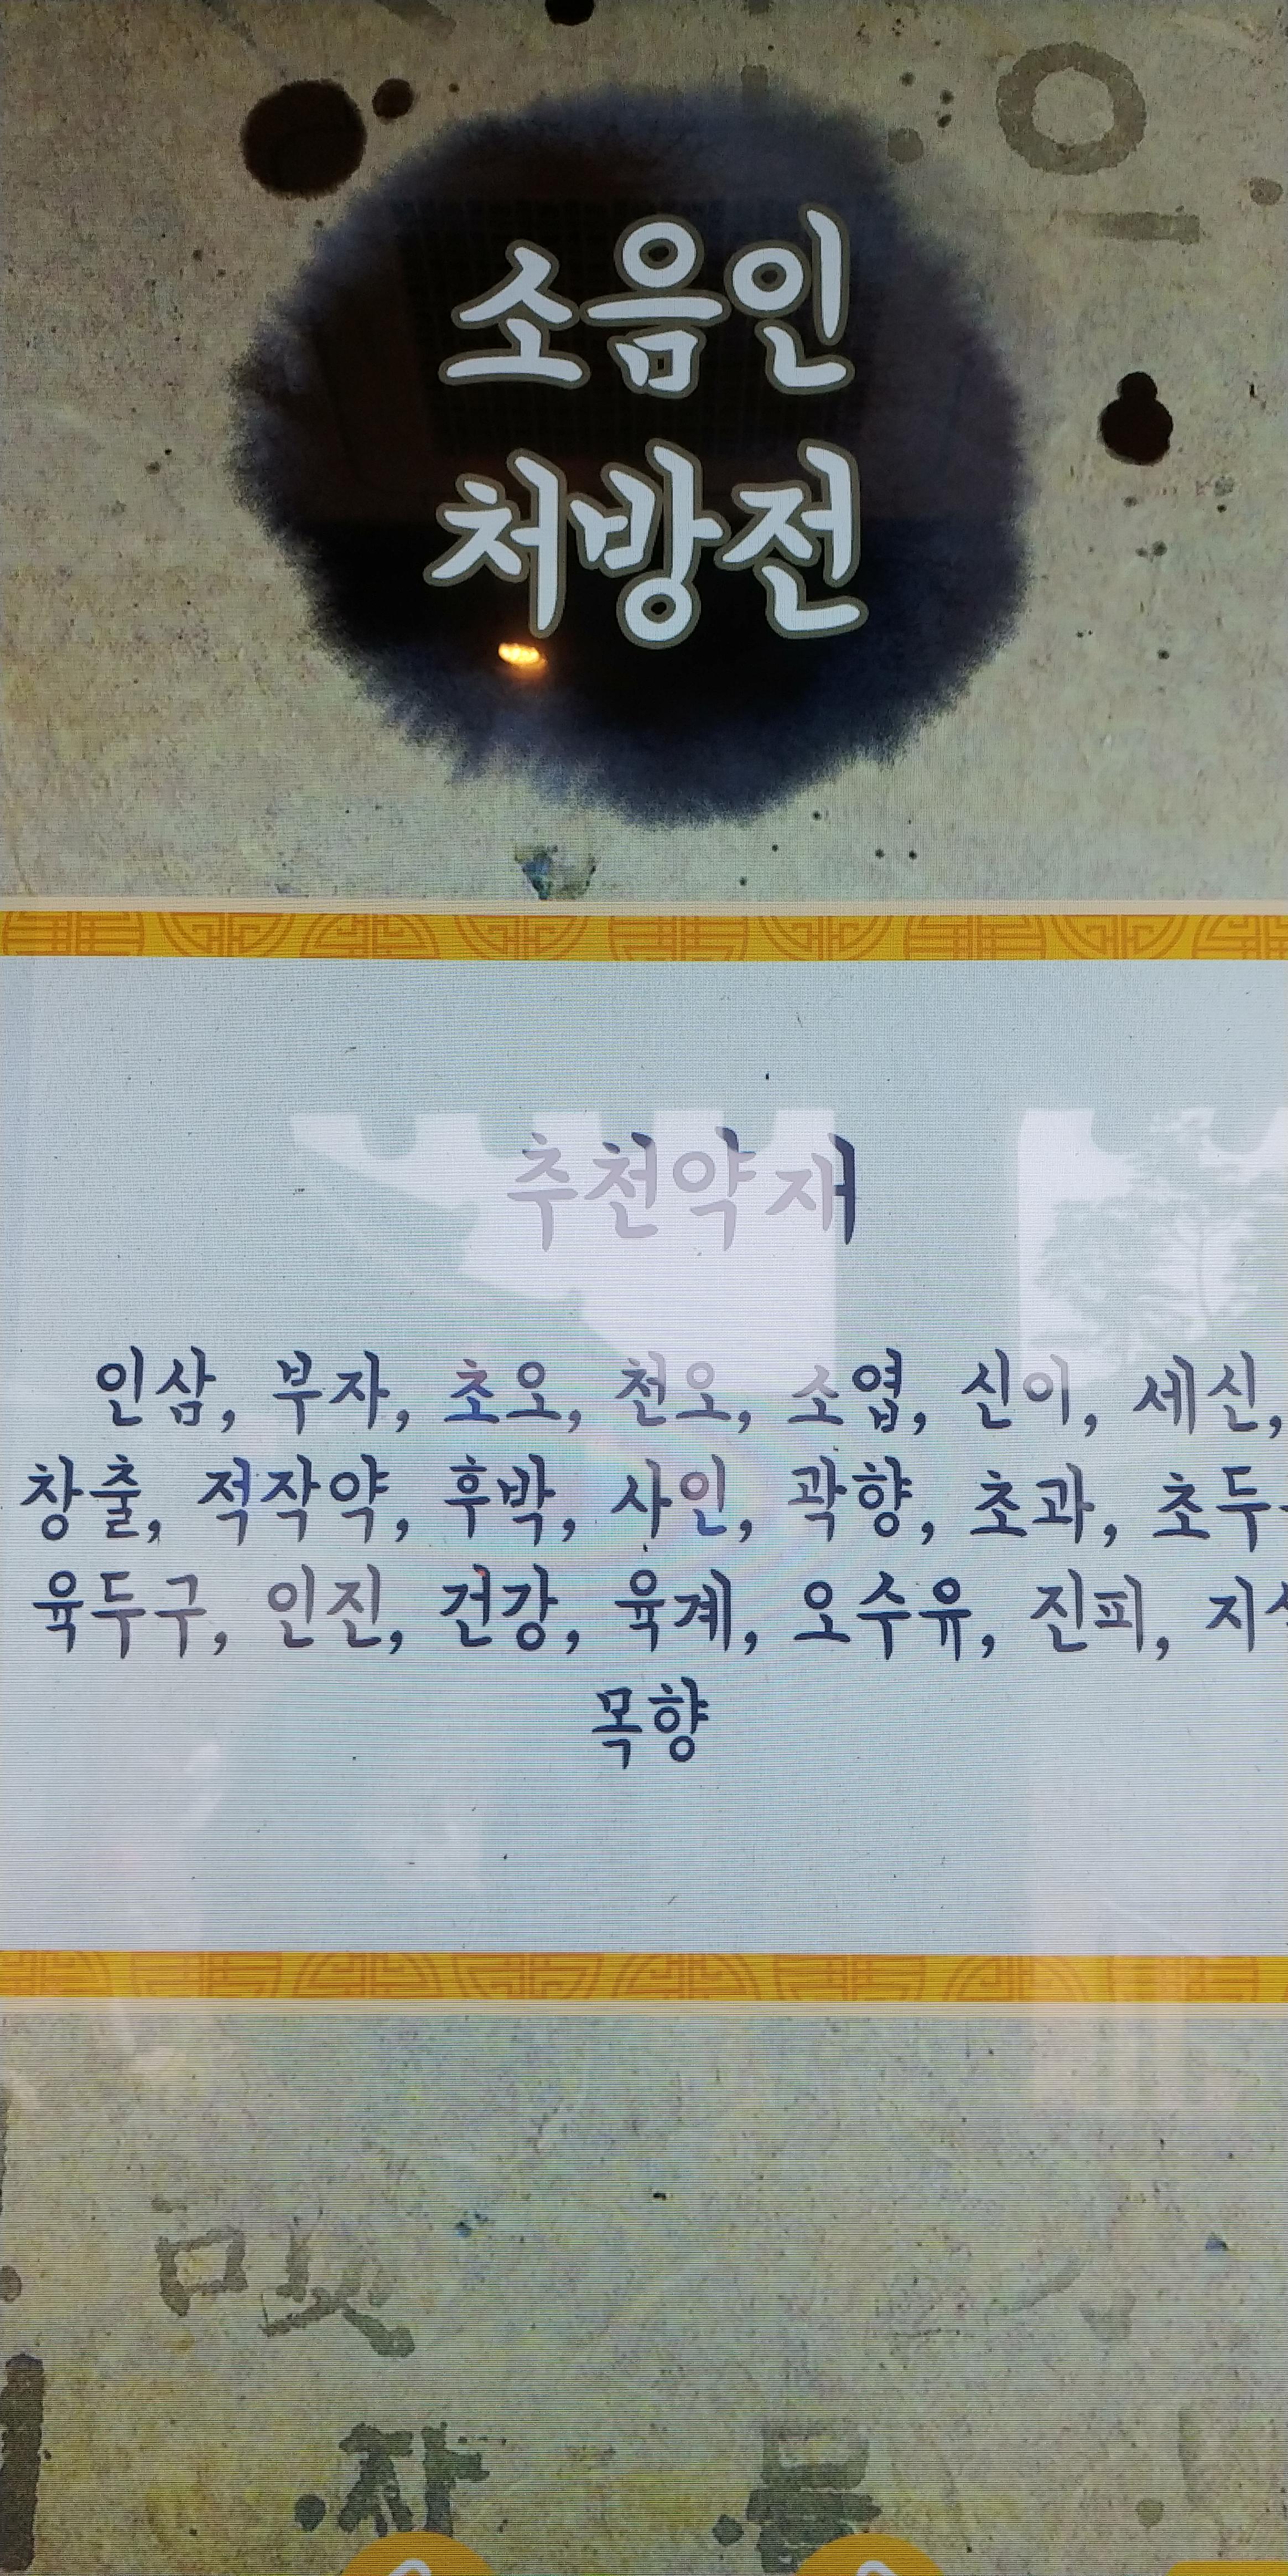 소음인
처방전
추천약재
인삼, 부자, 초오, 천오, 소엽, 신이, 세신,
창출, 적작약, 후박, 사인, 곽향, 초과, 초두
육두구, 인진, 건강, 육계, 오수유, 진피,
목향